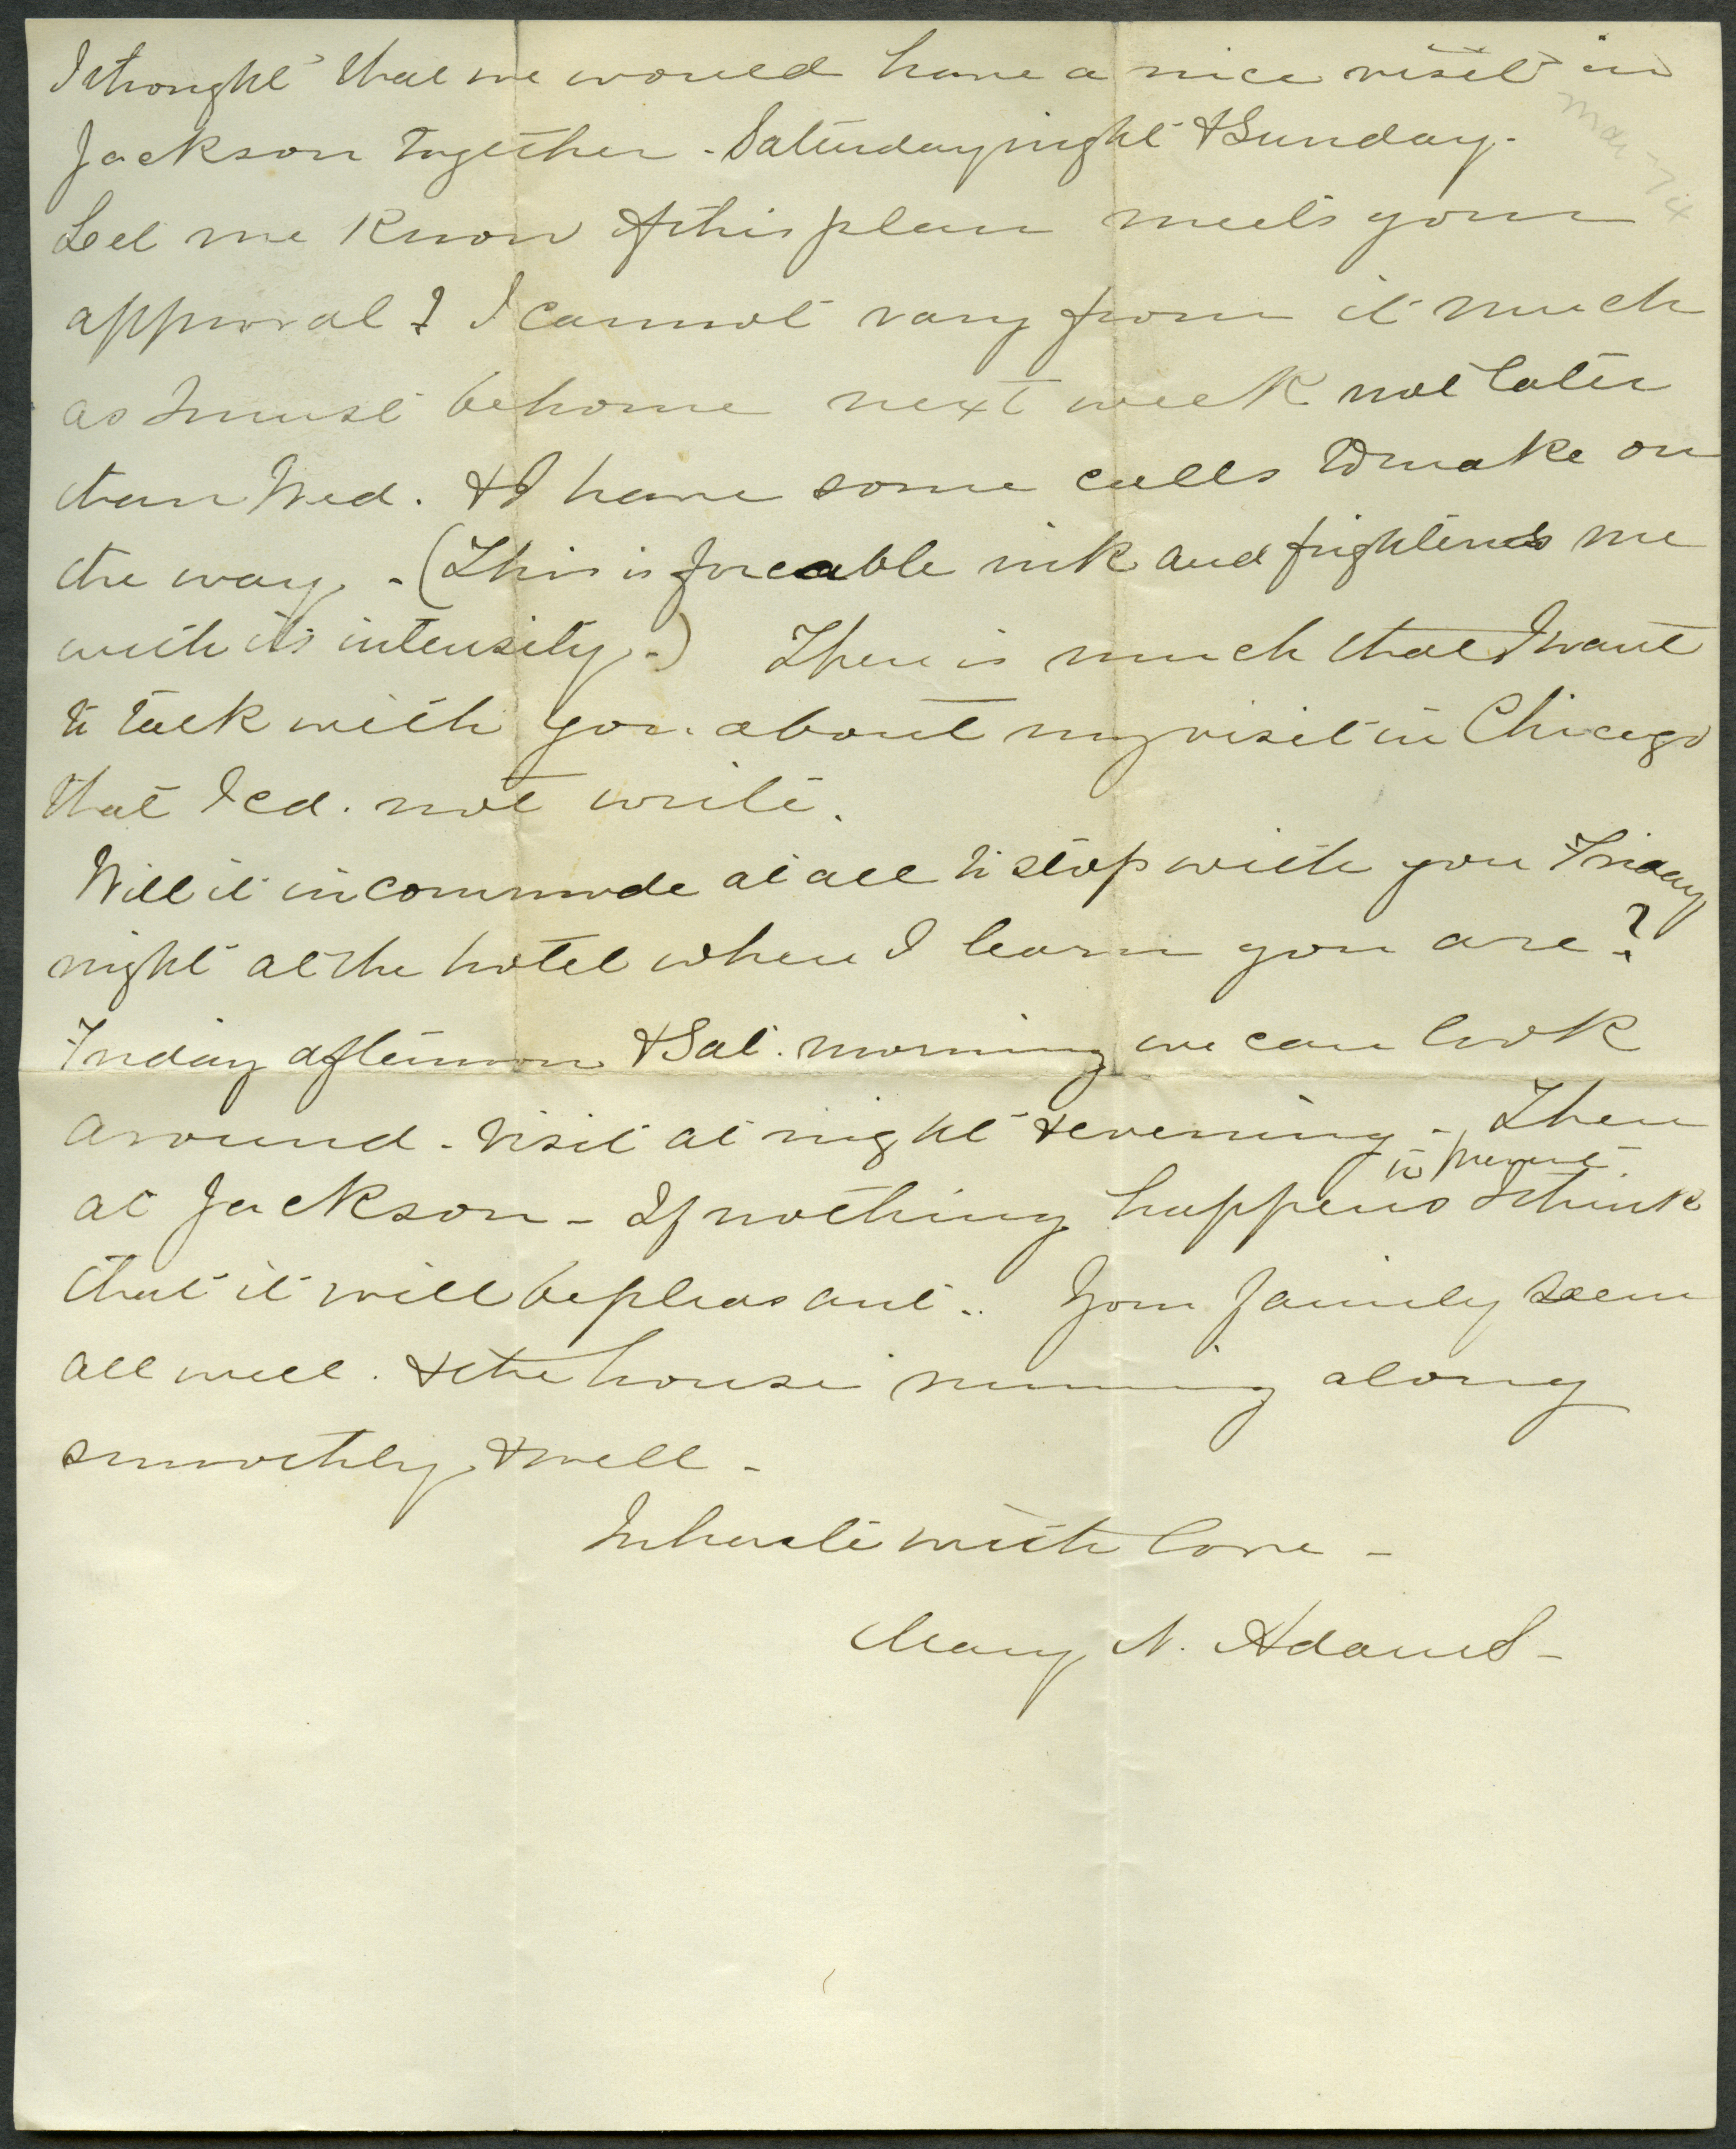 I thought that we would have a nice visit in
Jackson together - Saturday night & Sunday -
Let me know if this plan meets your
approval? I cannot vary from it much
as I must be home next week not later
than Wed. & I have some calls to make on
the way. - (This is forceable ink and frightens me
with its intensity -) There is much that I want
to talk with you about my visit in Chicago
that I cd. not write.
Will it incommode at all to stop with you Friday
night at the hotel where I learn you are?
Friday afternoon & Sat. morning we can look
around - Visit at night & evening - Then
to prevent
at Jackson - If nothing happens I think
that it will be pleasant .. Your family seem
all well . & the house running along
smoothly & well -
In haste with love -
Mary N. Adams -